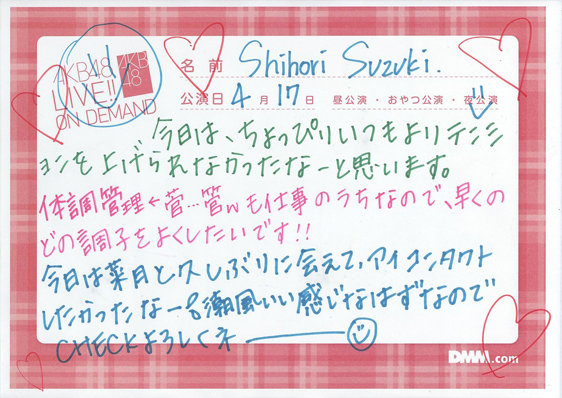 AKB48
LIVE!!
ON DEMAND
AKB
48
名前 Shihori Suzuki.
公演日 4月17日 昼公演・おやつ公演・夜公演
今日は、ちょっぴりいつもよりテンシ
ョンを上げられなかったなーと思います。
体調管理←菅…管wも仕事のうちなので、早くの
どの調子をよくしたいです!!
今日は菜月と久しぶりに会えて、アイコンタクト
したかったなー。潮風いい感じなはずなので
CHECKよろしくネ
DMM.com